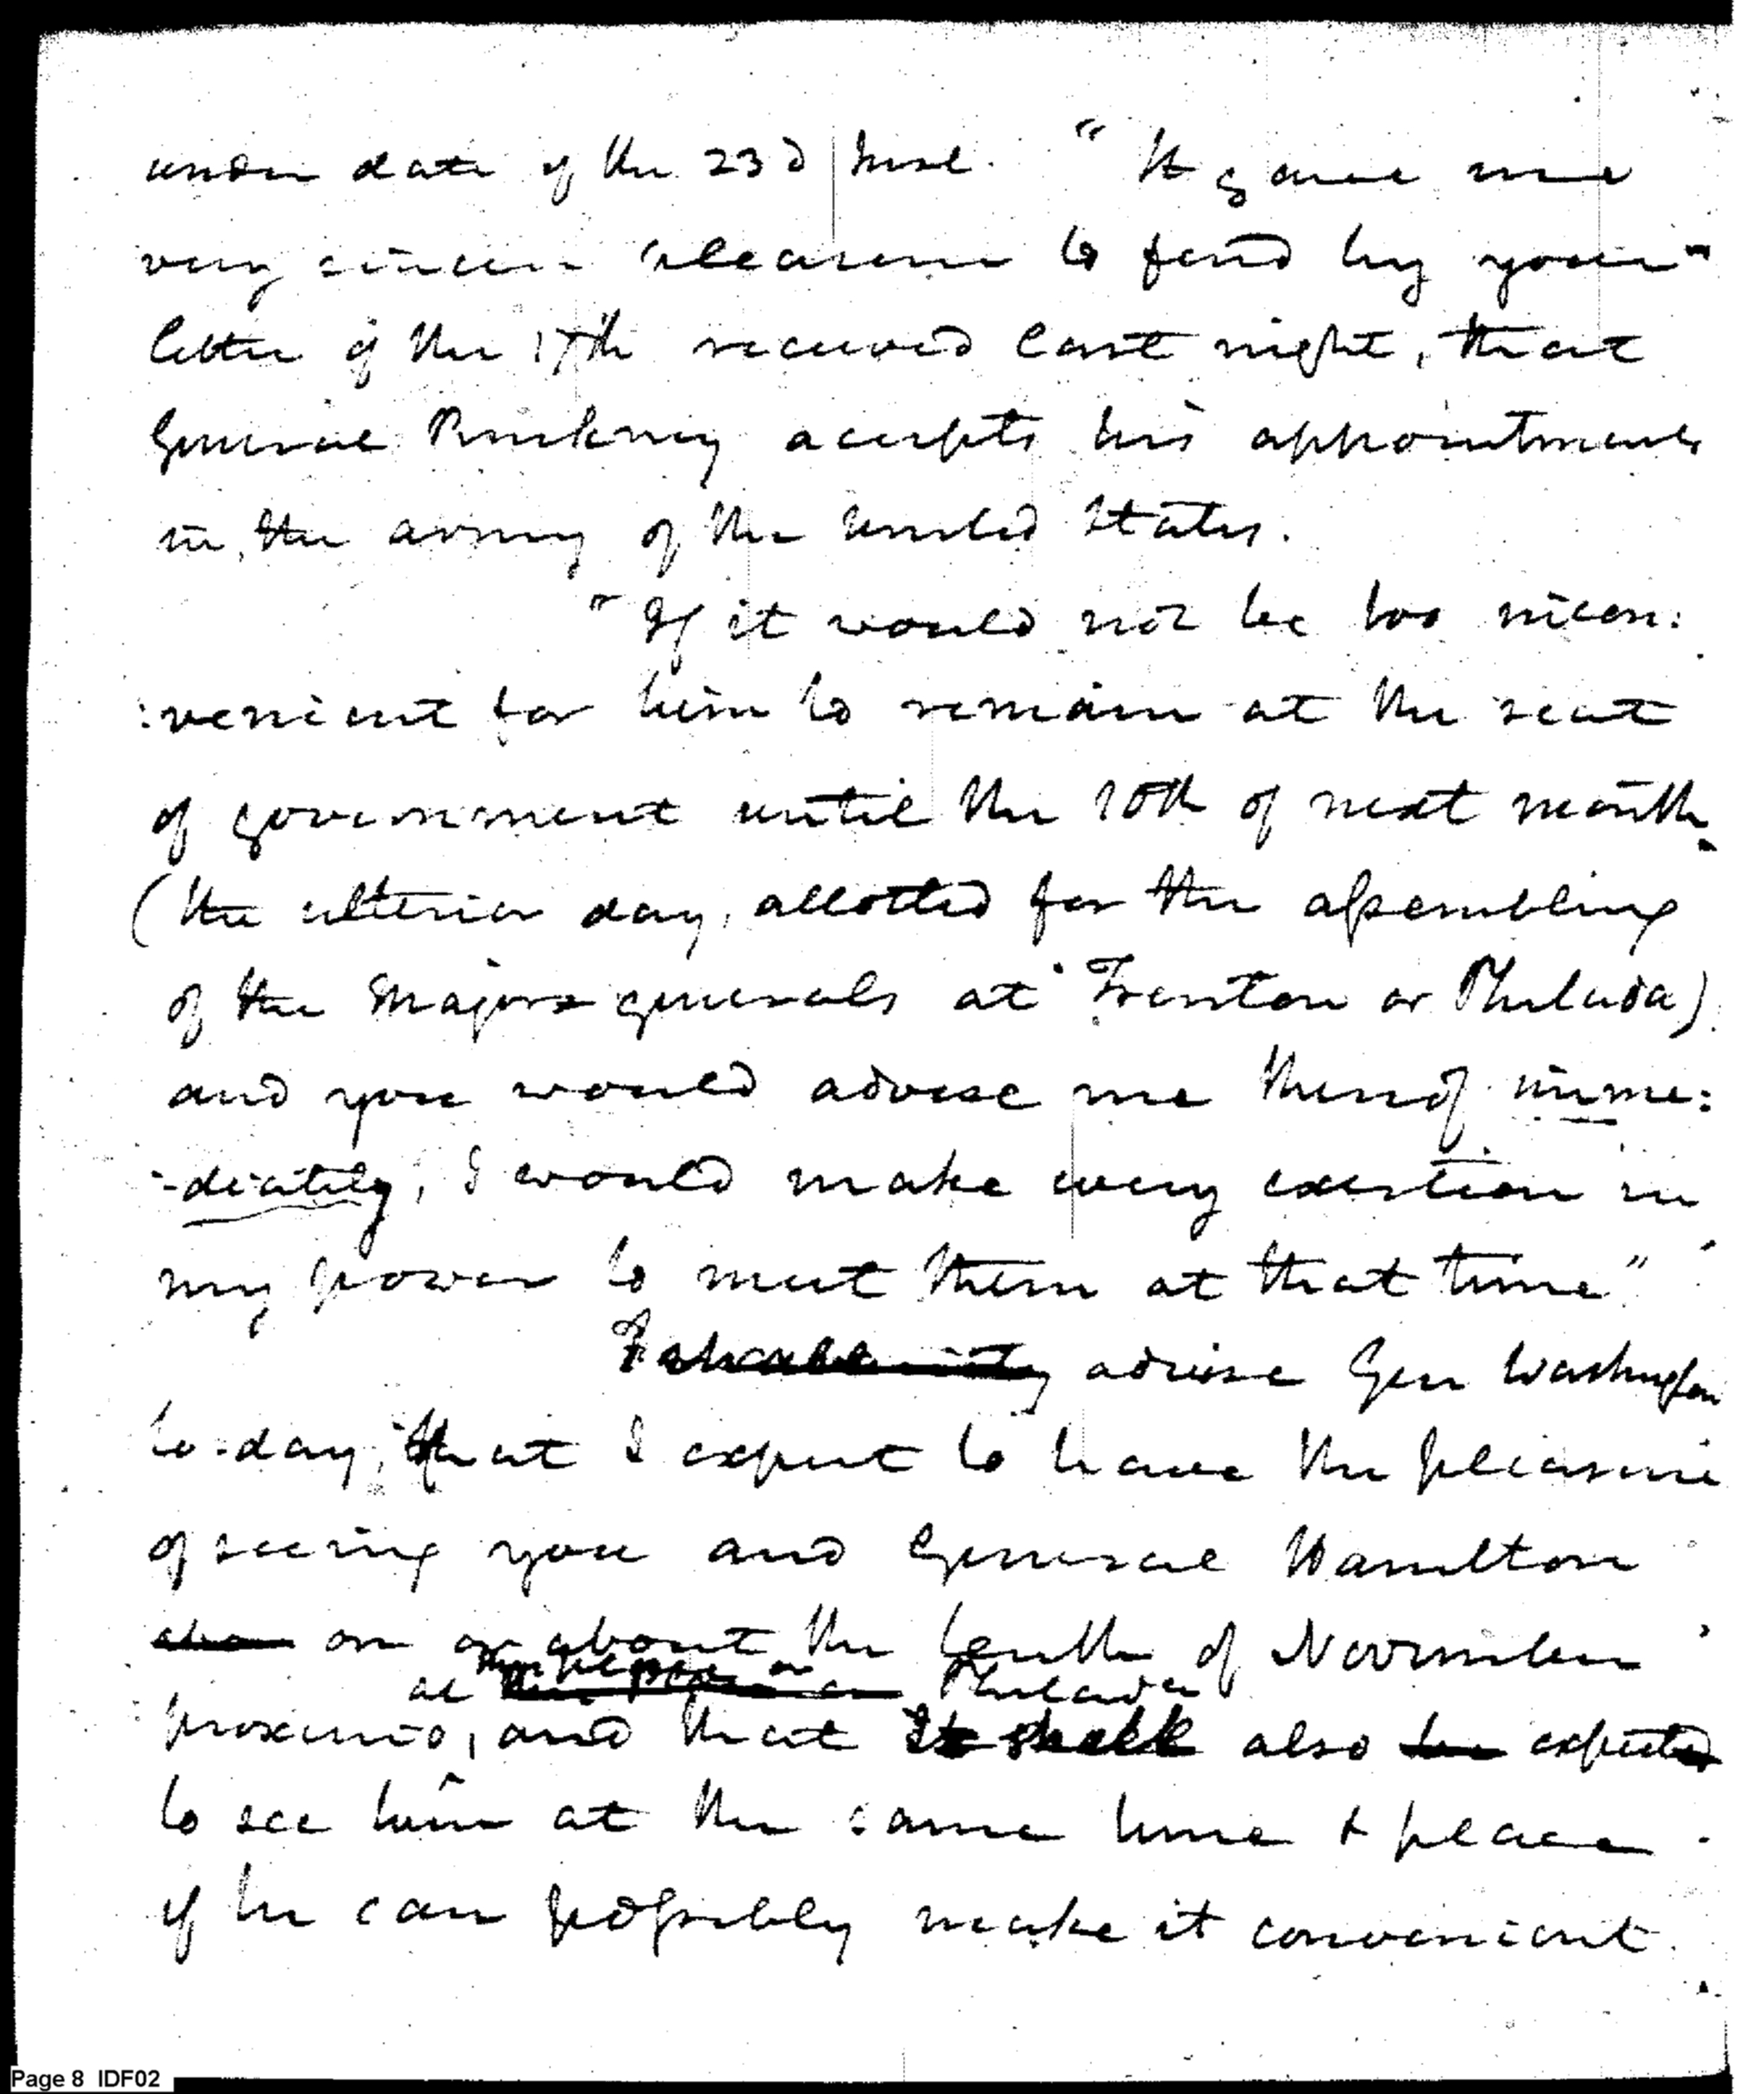 under date of the 23d inst. "It gave me
very sincere pleasure to find by your
letter of the 17th received last night, that
General Pinckney accepts his appointment
in the army of the United States.
"If it would not be too incon:
:venient for him to remain at the seat
of government until the 10th of next month
(the ulterior day, allotted for the assembling
of the Majors generals at Trenton or Philada)
and you would advise me thereof imme:
-diately, I would make every exertion in
my power to meet them at that time"
I shall advise Gen Washington
to-day, that I expect to have the pleasure
of seeing you and General Hamilton
on or about the tenth of November
at this place or Philada
proximo, and that I shall also be expected
to see him at the same time & place
if he can possibly make it convenient.
Page 8 IDF02